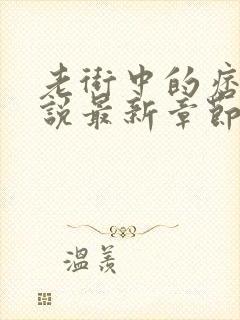 老街中的痞
說最新章節
溫羨